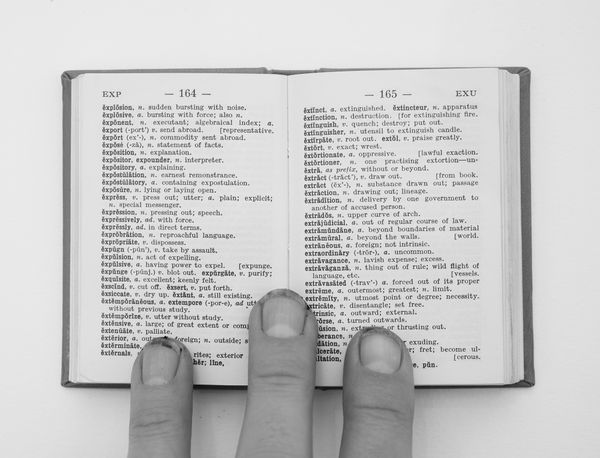 EXP — 164 —
explōsion, n. sudden bursting with noise.
explōsive, a. bursting with force; also n.
expōnent, n. executant; algebraical index; a.
export (-port') v. send abroad. [representative.
export (ex'-), n. commodity sent abroad.
expōsé (-zā), n. statement of facts.
exposition, n. explanation.
expositor, expounder, n. interpreter.
expository, a. explaining.
expostūlātion, n. earnest remonstrance.
expostūlātory, a. containing expostulation.
expōsūre, n. lying or laying open.
express, v. press out; utter; a. plain; explicit;
n. special messenger.
expression, n. pressing out; speech.
expressively, ad. with force.
expressly, ad. in direct terms.
exprobrātion, n. reproachful language.
exprōpriāte, v. dispossess.
expūgn (-pūn'), v. take by assault.
expulsion, n. act of expelling.
expulsive, a. having power to expel. [expunge.
expunge (-punj.) v. blot out. expūrgāte, v. purify;
exquisite, a. excellent; keenly felt.
exscind, v. cut off. exsert, v. put forth.
exsiccate, v. dry up. extant, a. still existing.
extempōrāneous, a. extempore (-por-e), ad
without previous study.
extempōrīze, v. utter without study.
extensive, a. large; of great extent or
extenūāte, v. palliate.
extērior, a. foreign; n. outside;
extermināte
externals, rites; exterior
līne,
— 165 — EXU
extinct, a. extinguished. extincteur, n. apparatus
extinction, n. destruction. [for extinguishing fire.
extinguish, v. quench; destroy; put out.
extinguisher, n. utensil to extinguish candle.
extirpāte, v. root out. extol, v. praise greatly.
extort, v. exact; wrest.
extortionate, a. oppressive. [lawful exaction.
extortioner, n. one practising extortion—un-
extrā, as prefix, without or beyond.
extract (-trāct'), v. draw out. [from book.
extract (ex'-), n. substance drawn out; passage
extraction, n. drawing out; lineage.
extradition, n. delivery by one government to
another of accused person.
extradōs, n. upper curve of arch.
extrajūdicial, a. out of regular course of law.
extramundāne, a. beyond boundaries of material
extramūral, a. beyond the walls. [world.
extrāneous, a. foreign; not intrinsic.
extraordinary (-trōr-), a. uncommon.
extravagance, n. lavish expense; excess.
extravaganzā, n. thing out of rule; wild flight of
language, etc. [vessels.
extravasāted (-trav'-) a. forced out of its proper
extrēme, a. outermost; greatest; n. limit.
extremity, n. utmost point or degree; necessity.
extricāte, v. disentangle; set free.
extrinsic, a. outward; external.
extrorse, a. turned outwards.
or thrusting out.
or exuding.
fret; become ul-
[cerous.
pūn.